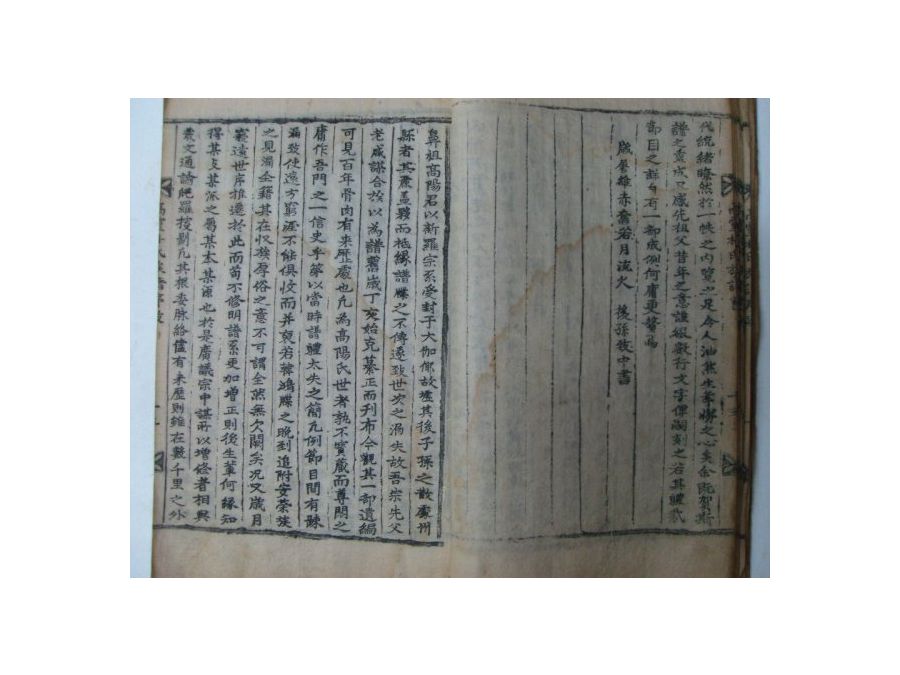 代統緒瞭然於一帙之內覽之足令人油然生孝悌之心矣余旣賀斯
譜之重成又感先祖父昔年之意謹綴數行文字俾剞刻之若其體裁
節目之詳自有一部成例何庸更贅焉
歲屠維赤奮若月流火 後孫 中書
鼻祖高陽君以新羅宗系受封于大伽倻故墟其後子孫之散處州
縣者其麗孟夥而秪緣譜牒之不傳遠致世次之渦失故吾宗先父
老咸謀合族以為譜舊歲丁亥始克纂正而刊布今觀其一部遺編
可見百年骨肉有來歷處也凡為高陽氏世者孰不寳藏而尊閣之
庸作吾門之一信史乎第以當時譜體太失之簡凡例節目間有踈
漏致使遠方窮涯不能俱收而并裒若韓鴻牒之晚到追附安柰族
之見濁全籍其在收族厚俗之意不可謂全然無欠闕矣况又歲月
寖遠世序推遷於此而苟不修明譜系更加增正則後生輩何緣知
得某支某派之屬某本某源也於是廣議宗中謀所以增修者相與
發文通諭 羅搜剔凡其根委脉絡儘有来歷則雖在數千里之外